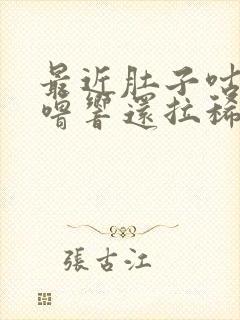 最近肚子咕
嘈響還拉稀
張古江